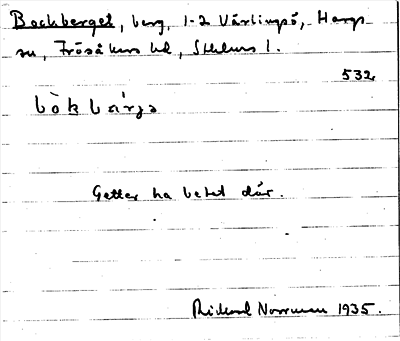 Bockberget, berg, 1-2 Vårlingsö, Hargs
sn, Frösåkers hd, Sthlms l.
532
bòkbärjə
Getter ha betat där.
Rickard Norrman 1935.